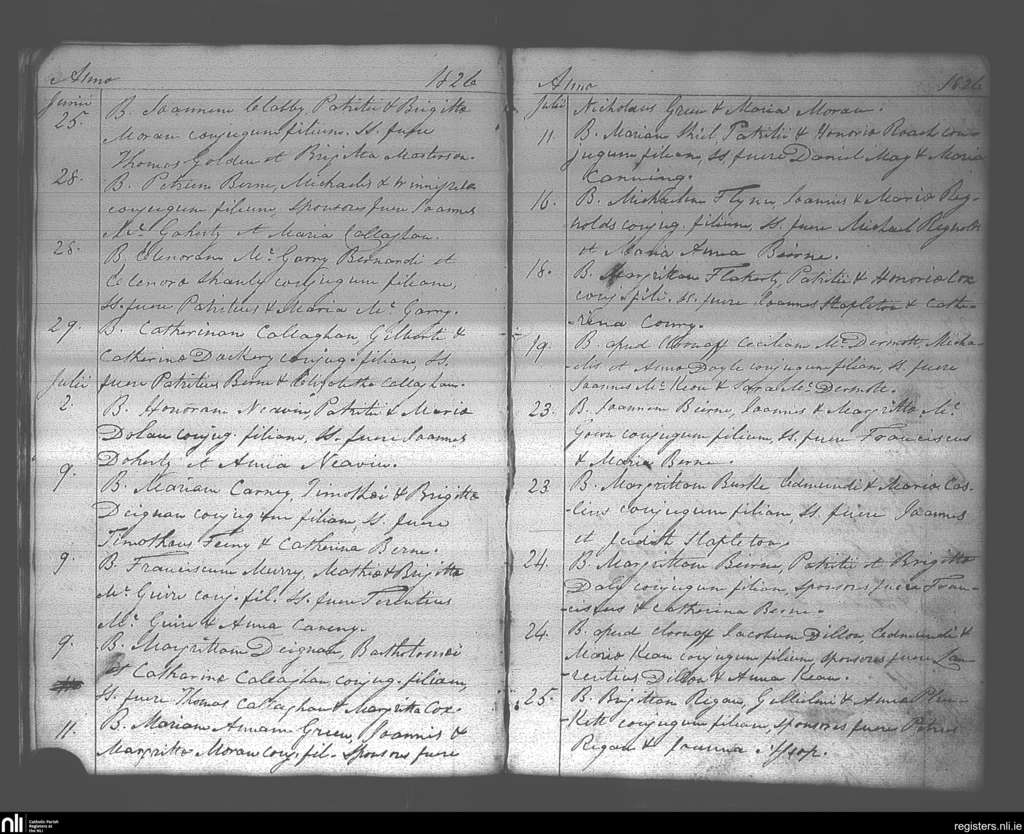 Anno 1826
Junii
25. B. Joannem Clabby Patritii & Brigitta
Moran conjugum filium. SS. fuere
Thomas Golden et Brigitta Masterson.
28. B. Petrum Berne, Michaelis & Winnifrida
conjugum filium, Sponsores fuere Joannes
Mc. Goherty et Maria Callaghan.
28. B. Elenoram Mc. Garry Bernardi et
Elenora Shanly conjugum filiam,
SS. fuere Patritius & Maria Mc. Garry.
29. B. Catharinam Callaghan, Gilberti &
Catharina Dockery conjug. filiam, SS.
Julii fuere Patritius Berne & Elizabetha Callaghan.
2. B. Honoram Neavin, Patritii & Maria
Dolan conjug. filiam, SS. fuere Joannes
Doherty et Anna Neavin.
9. B. Mariam Carney, Timothei & Brigitta
Deignan conjugum filiam, SS. fuere
Timotheus Feiny & Catherina Berne.
9. B. Franciscum Murry, Mathia & Brigitta
Mc. Guire conj. fil. SS. fuere Terentius
Mc. Guire & Anna
9. B. Margrittam Deignan, Bartholomei
et Catharina Caleaghan, conjug. filiam,
SS. fuere Thomas Callaghan & Margritta Cox.
11. B. Mariam Annam Green, Joannis &
Margritta Moran conj. fil. Sponsores fuere
Anno 1826
Julii Nicholaus Green & Maria Moran.
11. B. Mariam Phil Patritii & Honoria Roach con-
jugum filiam, SS. fuere Daniel May & Maria
Canning.
16. B. Michaelem Flynn, Joannis & Maria Rey-
nolds conjug. filium, SS. fuere Michael Reynolds
et Maria Anna Beirne.
18. B. Margrittam Flaherty, Patritii & Honoria Cox
conj. fili. SS. fuere Joannes Stapleton & Cathe-
-rina Conry.
19. B. apud Clonaff Ceciliam Mc. Dermott, Micha-
elis et Anna Doyle conjugum filiam, SS. fuere
Joannes Mc. Keon & Sara Mc. Dermott.
23. B. Joannem Beirne, Joannis & Margritta Mc.
Gown conjugum filium, SS. fuere Franciscus
& Maria Berne.
23. B. Margrittam Burke Edmundi & Maria Cos-
conjugum filiam, SS. fuere Joannes
et Judith Stapleton.
24. B. Margrittam Beirne, Patritii et Brigitta
Daly conjugum filiam, sponsores fuere Fran-
-ciscus & Catherina Berne.
24. B. apud Clonaff Jacobum Dillon, Edmundi &
Maria Kean conjugum filium, sponsores fuere Lau-
-rentius Dillon & Anna Kean.
25. B. Brigittam Regan, Gullielmi & Anna Plun-
-kett conjugum filiam, sponsores fuere Petrus
Regan & Joanna
nli
Catholic Parish
Registers at
the NLI
registers.nli.ie